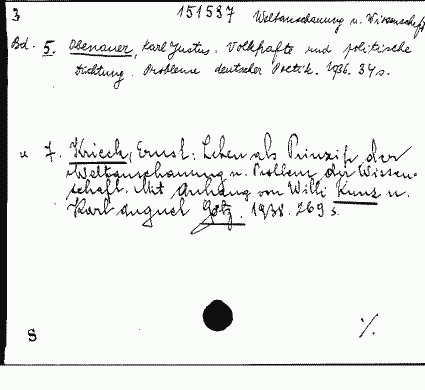 3 151537 Weltanschauung u. Wissenschaft
Bd. 5. Obenauer, Karl Justus: Volkhafte und politische
Dichtung. Probleme deutscher Poetik. 1936. 34 s.
u 7. Krieck, Ernst: Leben als Prinzip der
Weltanschauung u. Problem der Wissen-
schaft. Mit Anhang von Willi Kunz u.
Karl August Götz. 1938. 269 s.
S ./.